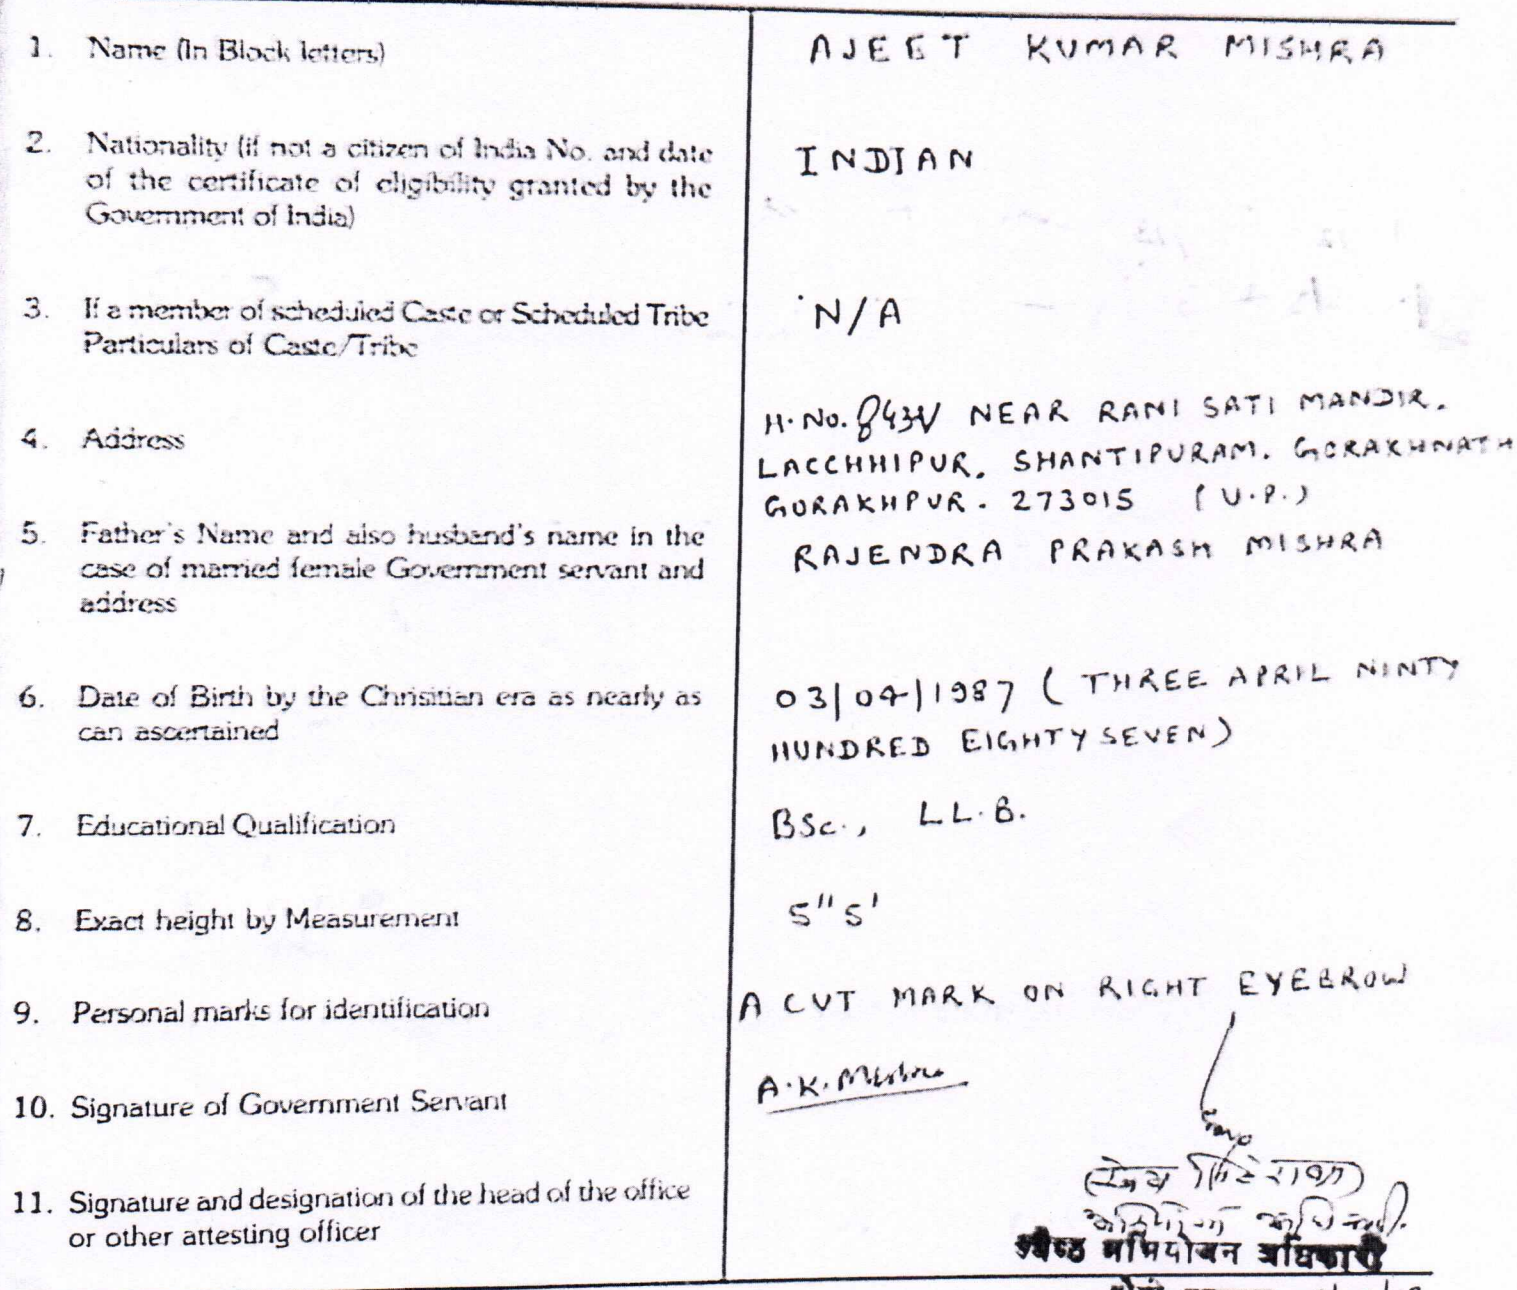 1. Name (In Block letters)
AJEET KUMAR MISHRA
2. Nationality (if not a citizen of India No. and date
of the certificate of eligibility granted by the
Government of India)
INDIAN
3. If a member of scheduled Caste or Scheduled Tribe
Particulars of Caste/Tribe
N/A
4. Address
H.No. NEAR RANI SATI MANDIR.
LACCHHIPUR. SHANTIPURAM. GORAKHNATH
GORAKHPUR. 273015 (U.P.)
5. Father's Name and also husband's name in the
case of married female Government servant and
address
RAJENDRA PRAKASH MISHRA
6. Date of Birth by the Chrisitian era as nearly as
can ascertained
03/04/1987 ( THREE APRIL NINTY
HUNDRED EIGHTY SEVEN)
7. Educational Qualification
BSc., LL.B.
8. Exact height by Measurement
5" 5'
9. Personal marks for identification
A CUT MARK ON RIGHT EYEBROW
10. Signature of Government Servant
A.K. Mishra
11. Signature and designation of the head of the office
or other attesting officer
ज्येष्ठ अभियोजन अधिकारी